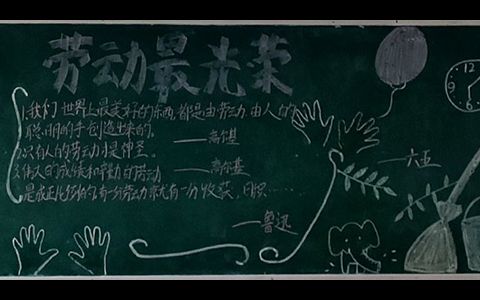 劳动最光荣
1.我们世界上最美好的东西,都是由劳动、由人的
聪明的手创造出来的。——高尔基
2.只有人的劳动才是神圣。——高尔基
3.伟人的成绩和辛勤的劳动
是成正比例的,有一分劳动就有一分收获,日积……
——鲁迅
——六五
12
3
6